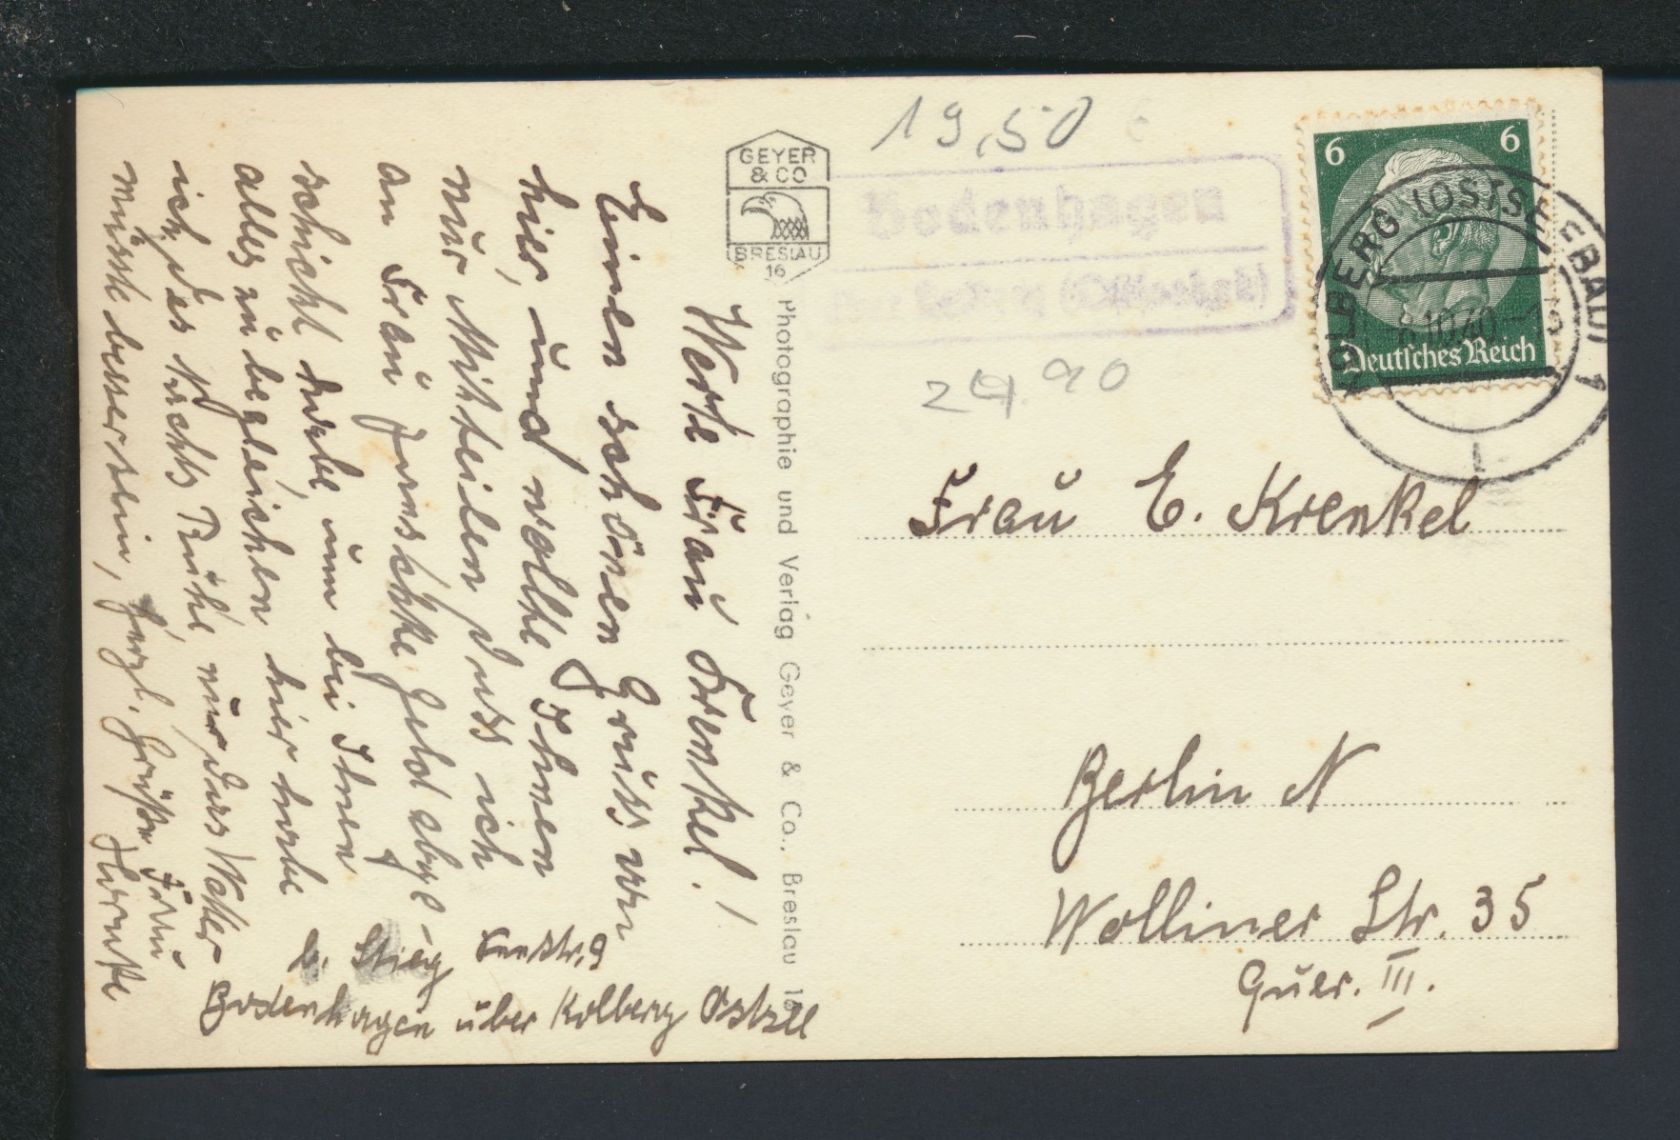 19,50
GEYER
& CO
BRESLAU
16
Bodenhagen
(Ostseebad)
KOLBERG (OSTSEEBAD) 1
10.40
6 6
Deutsches Reich
24.90
Photographie und Verlag Geyer & Co., Breslau 16
Werte Frau Krenkel!
Einen schönen Gruss von
hier, und wollte Ihnen
nur Mitteilen dass ich
an Frau Geld abge-
schickt habe, um bei Ihnen
alles zu begleichen, hier habe
ich des Nachts Ruhe, nur das Wetter
müsste besser sein, herzl. Grüße
b. Stieg
Bodenhagen über Kolberg Ostsee
Frau E. Krenkel
Berlin N
Wolliner Str. 35
Quer. III.